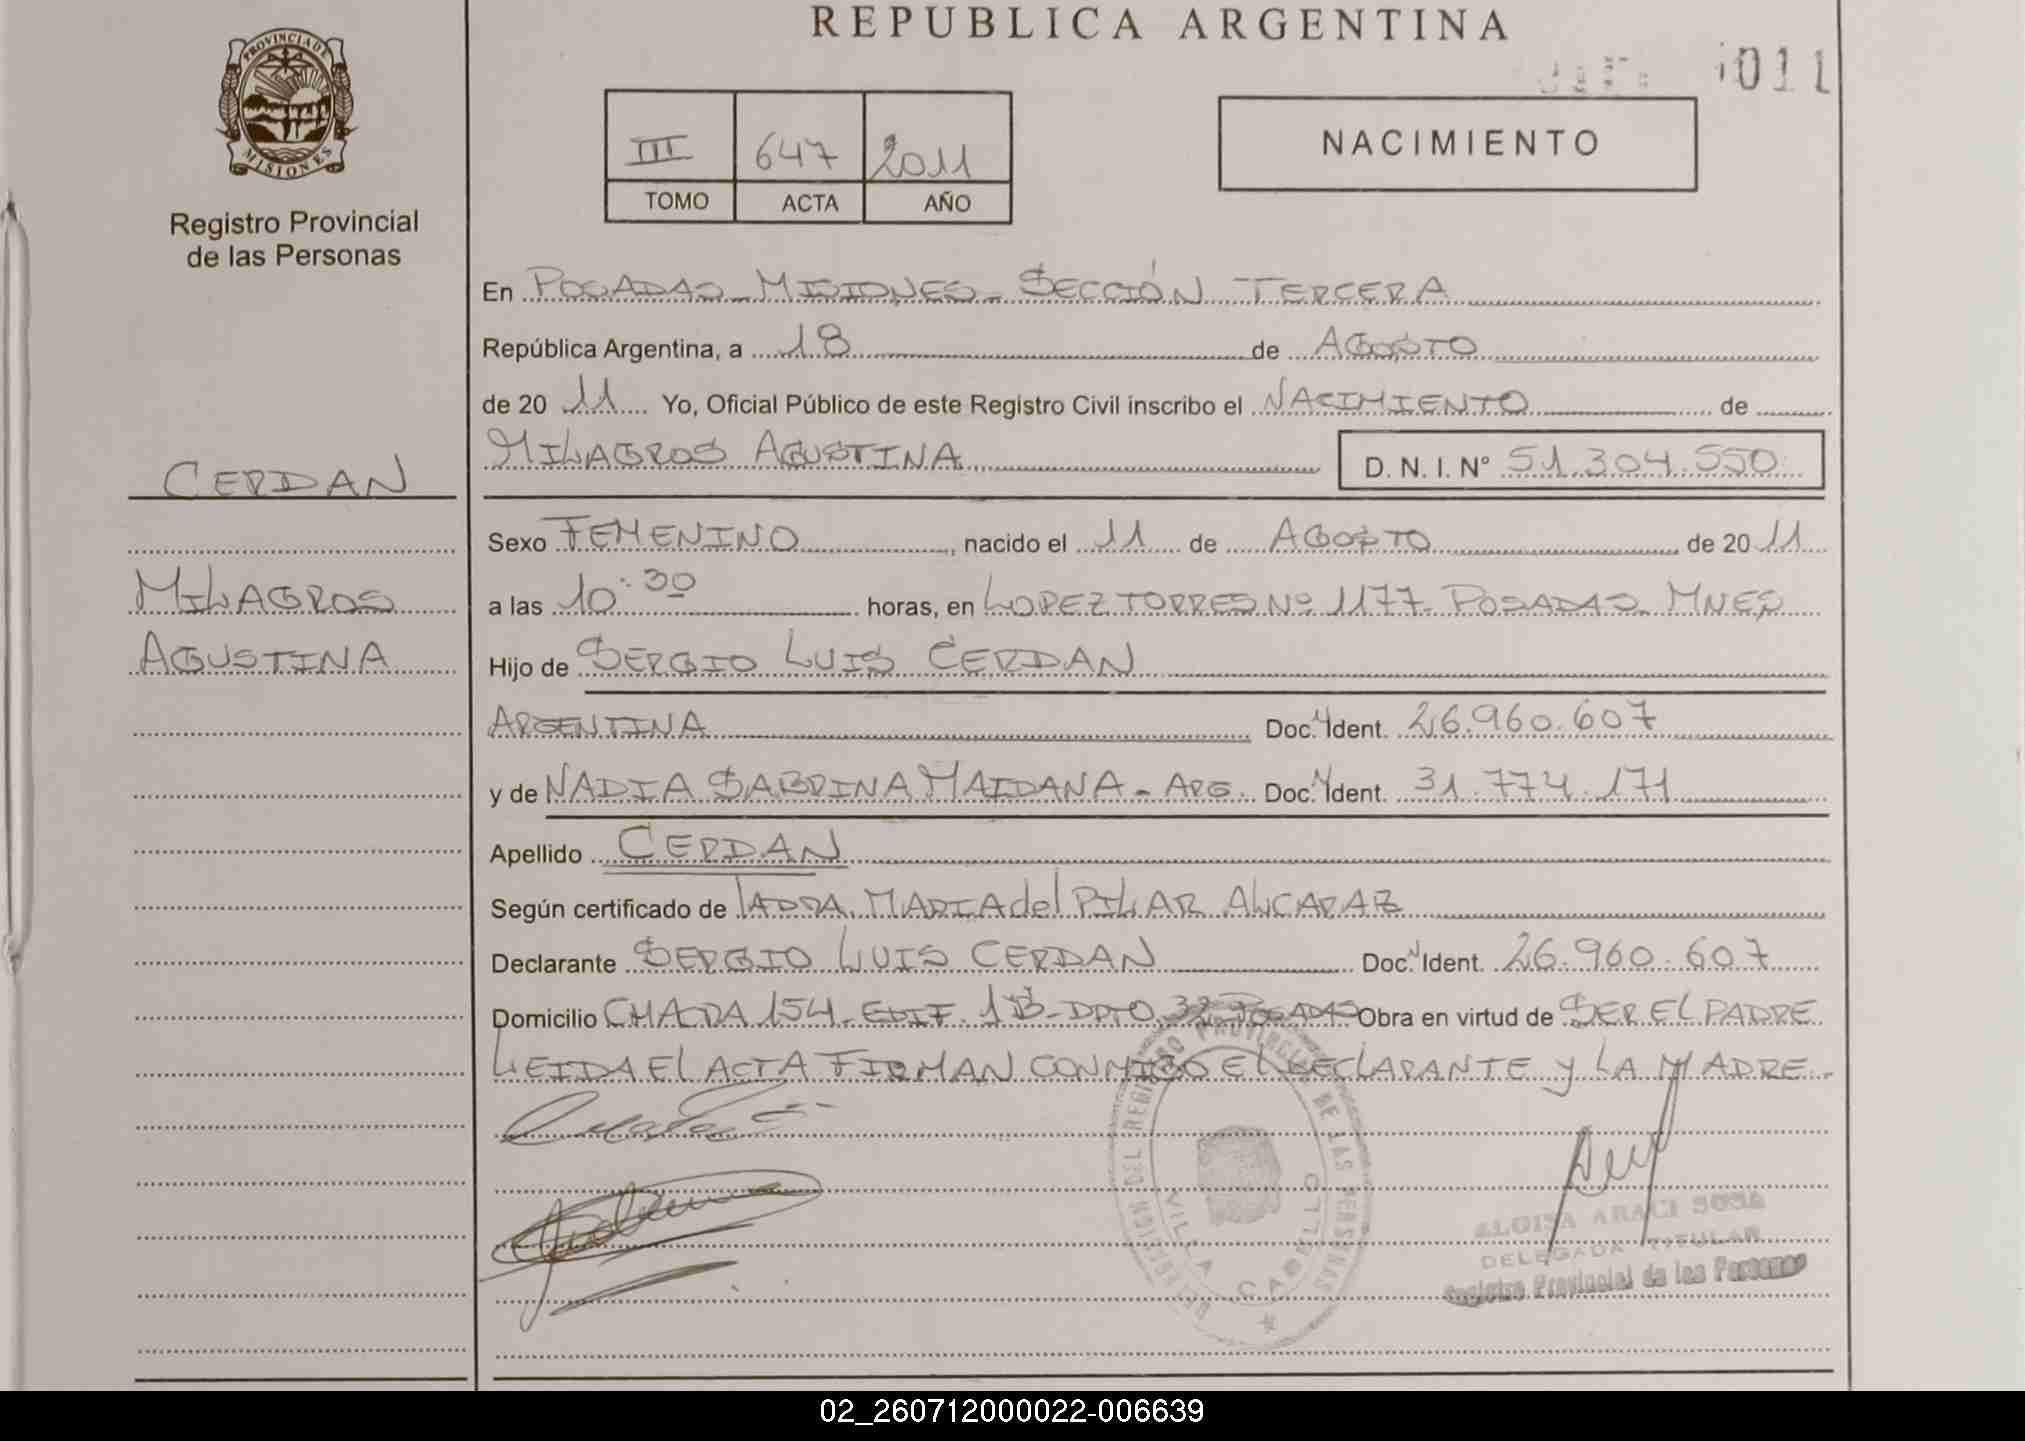 REPUBLICA ARGENTINA
011
PROVINCIA DE
MISIONES
Registro Provincial
de las Personas
III 647 2011
TOMO ACTA AÑO
NACIMIENTO
En POSADAS - MISIONES - SECCIÓN TERCERA
República Argentina, a 18 de AGOSTO
de 20 11 Yo, Oficial Público de este Registro Civil inscribo el NACIMIENTO de
MILAGROS AGUSTINA D. N. I. N° 51.304.550
CERDAN
MILAGROS
AGUSTINA
Sexo FEMENINO, nacido el 11 de AGOSTO de 20 11
a las 10:30 horas, en LOPEZ TORRES Nº 1177 - POSADAS - MNES
Hijo de SERGIO LUIS CERDAN
ARGENTINA Doc. Ident. 26.960.607
y de NADIA SABRINA MAIDANA - ARG. Doc. Ident. 31.774.171
Apellido CERDAN
Según certificado de MARIA del PILAR ALCARAZ
Declarante SERGIO LUIS CERDAN Doc. Ident. 26.960.607
Domicilio CHACRA 154 - EDIF. 1B - DPTO. POSADAS Obra en virtud de SER EL PADRE
LEIDA EL ACTA FIRMAN CONMIGO EL DECLARANTE Y LA MADRE -
DELEGACION DEL REGISTRO PROVINCIAL DE LAS PERSONAS
VILLA CABELLO
ALOISA ARACI SOSA
DELEGADA TITULAR
Registro Provincial de las Personas
02_260712000022-006639